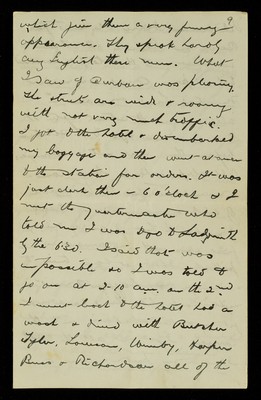 9
which give them a very funny
appearance. They speak hardly
any English these men. What
I saw of Durban was pleasing
The streets are wide & roomy
with not very much traffic.
I got to the hotel & disembarked
my baggage and then went at once
to the station for orders. It was
just about then - 6 o'clock & I
met the quartermaster who
told me I was to go to Ladysmith
by the 6.30. I said that was
impossible so I was told to
go on at 2-10 a.m. on the 2nd
I went back to the hotel had a
wash & dined with Butcher
Tyler, Harper
& Richardson all of the